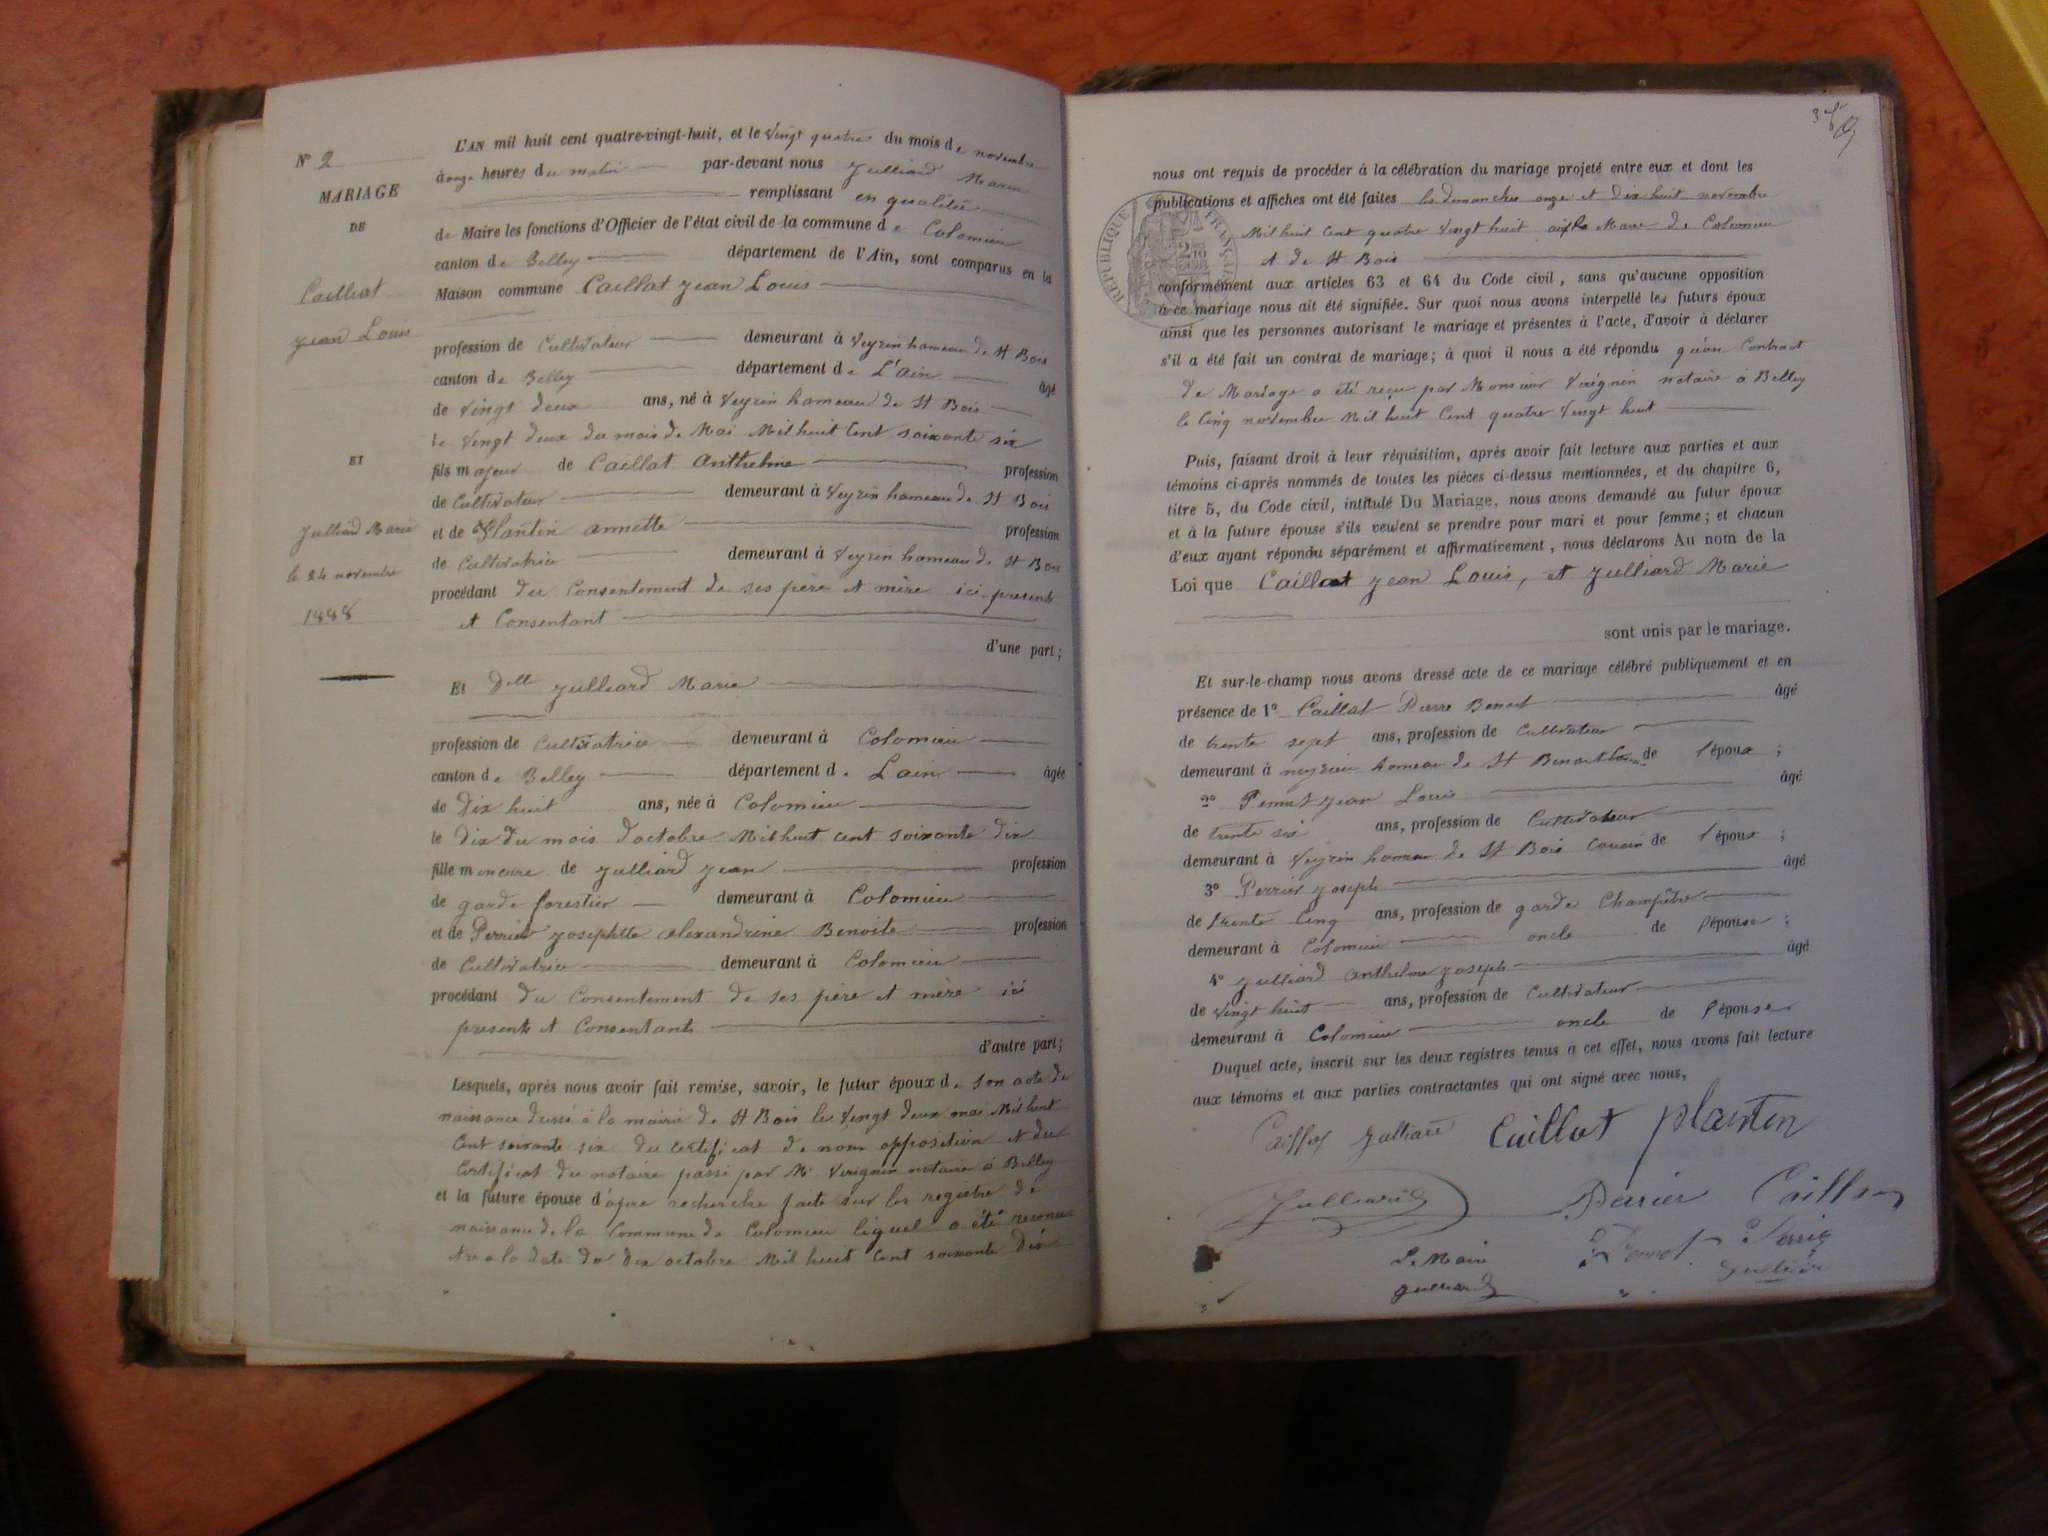 N° 2
MARIAGE
DE
Cailliat
Jean Louis
ET
Julliard Marie
le 24 novembre
1888
L'AN mil huit cent quatre-vingt-huit, et le vingt quatre du mois de novembre
à onze heures du matin par-devant nous Julliard Marin
remplissant en qualité
de Maire les fonctions d'Officier de l'état civil de la commune de Colomieu
canton de Belley département de l'Ain, sont comparus en la
Maison commune Caillat Jean Louis
profession de Cultivateur demeurant à Veyrin hameau de St Bois
canton de Belley département de L'ain âgé
de vingt deux ans, né à Veyrin hameau de St Bois
le vingt deux du mois de Mai Mil huit Cent soixante six
fils majeur de Caillat Anthelme profession
de Cultivateur demeurant à Veyrin hameau de St Bois
et de Plantin annette profession
de Cultivatrice demeurant à Veyrin hameau de St Bois
procédant du Consentement de ses père et mère ici presents
et Consentant
d'une part;
Et Dlle Julliard Marie
profession de Cultivatrice demeurant à Colomieu
canton de Belley département de Lain âgée
de Dix huit ans, née à Colomieu
le Dix Du mois d'octobre Mil huit cent soixante dix
fille mineure de Julliard Jean profession
de garde forestier demeurant à Colomieu
et de Perrier Josephtte alexandrine Benoite profession
de Cultivatrice demeurant à Colomieu
procédant du Consentement de ses père et mère ici
presents et Consentants
d'autre part;
Lesquels, après nous avoir fait remise, savoir, le futur époux de son acte de
naissance dressé à la mairie de St Bois le vingt deux mai Mil huit
Cent soixante six du certificat de nom opposition et du
Certificat du notaire passé par Me Verignin notaire à Belley
et la future épouse d'apre recherche faite sur les registre de
naissance de la Commune de Colomieu lequel a été reconu
être a la date du dix octobre Mil huit Cent soixante Dix
nous ont requis de procéder à la célébration du mariage projeté entre eux et dont les
publications et affiches ont été faites les dimanches onze et dix huit novembre
Mil huit Cent quatre vingt huit de Colomieu
et de St Bois
RÉPUBLIQUE FRANÇAISE
conformément aux articles 63 et 64 du Code civil, sans qu'aucune opposition
à ce mariage nous ait été signifiée. Sur quoi nous avons interpellé les futurs époux
ainsi que les personnes autorisant le mariage et présentes à l'acte, d'avoir à déclarer
s'il a été fait un contrat de mariage; à quoi il nous a été répondu qu'un Contract
de Mariage a été reçu par Monsieur Verignin notaire à Belley
le Cinq novembre Mil huit Cent quatre vingt huit
Puis, faisant droit à leur réquisition, après avoir fait lecture aux parties et aux
témoins ci-après nommés de toutes les pièces ci-dessus mentionnées, et du chapitre 6,
titre 5, du Code civil, intitulé Du Mariage, nous avons demandé au futur époux
et à la future épouse s'ils veulent se prendre pour mari et pour femme; et chacun
d'eux ayant répondu séparément et affirmativement, nous déclarons Au nom de la
Loi que Caillat Jean Louis, et Julliard Marie
sont unis par le mariage.
Et sur-le-champ nous avons dressé acte de ce mariage célébré publiquement et en
présence de 1° Caillat Pierre Benoit âgé
de trente sept ans, profession de Cultivateur
demeurant à hameau de St Benoit de l'époux;
2° Jean Louis âgé
de trente six ans, profession de Cultivateur
demeurant à Veyrin hameau de St Bois Cousin de l'époux;
3° Perrier Joseph âgé
de trente Cinq ans, profession de garde Champêtre
demeurant à Colomieu oncle de l'épouse;
4° Julliard Anthelme Joseph âgé
de vingt huit ans, profession de Cultivateur
demeurant à Colomieu oncle de l'épouse
Duquel acte, inscrit sur les deux registres tenus à cet effet, nous avons fait lecture
aux témoins et aux parties contractantes qui ont signé avec nous,
Caillat Julliard Caillat Plantin
Julliard Perrier
Le Maire
Julliard